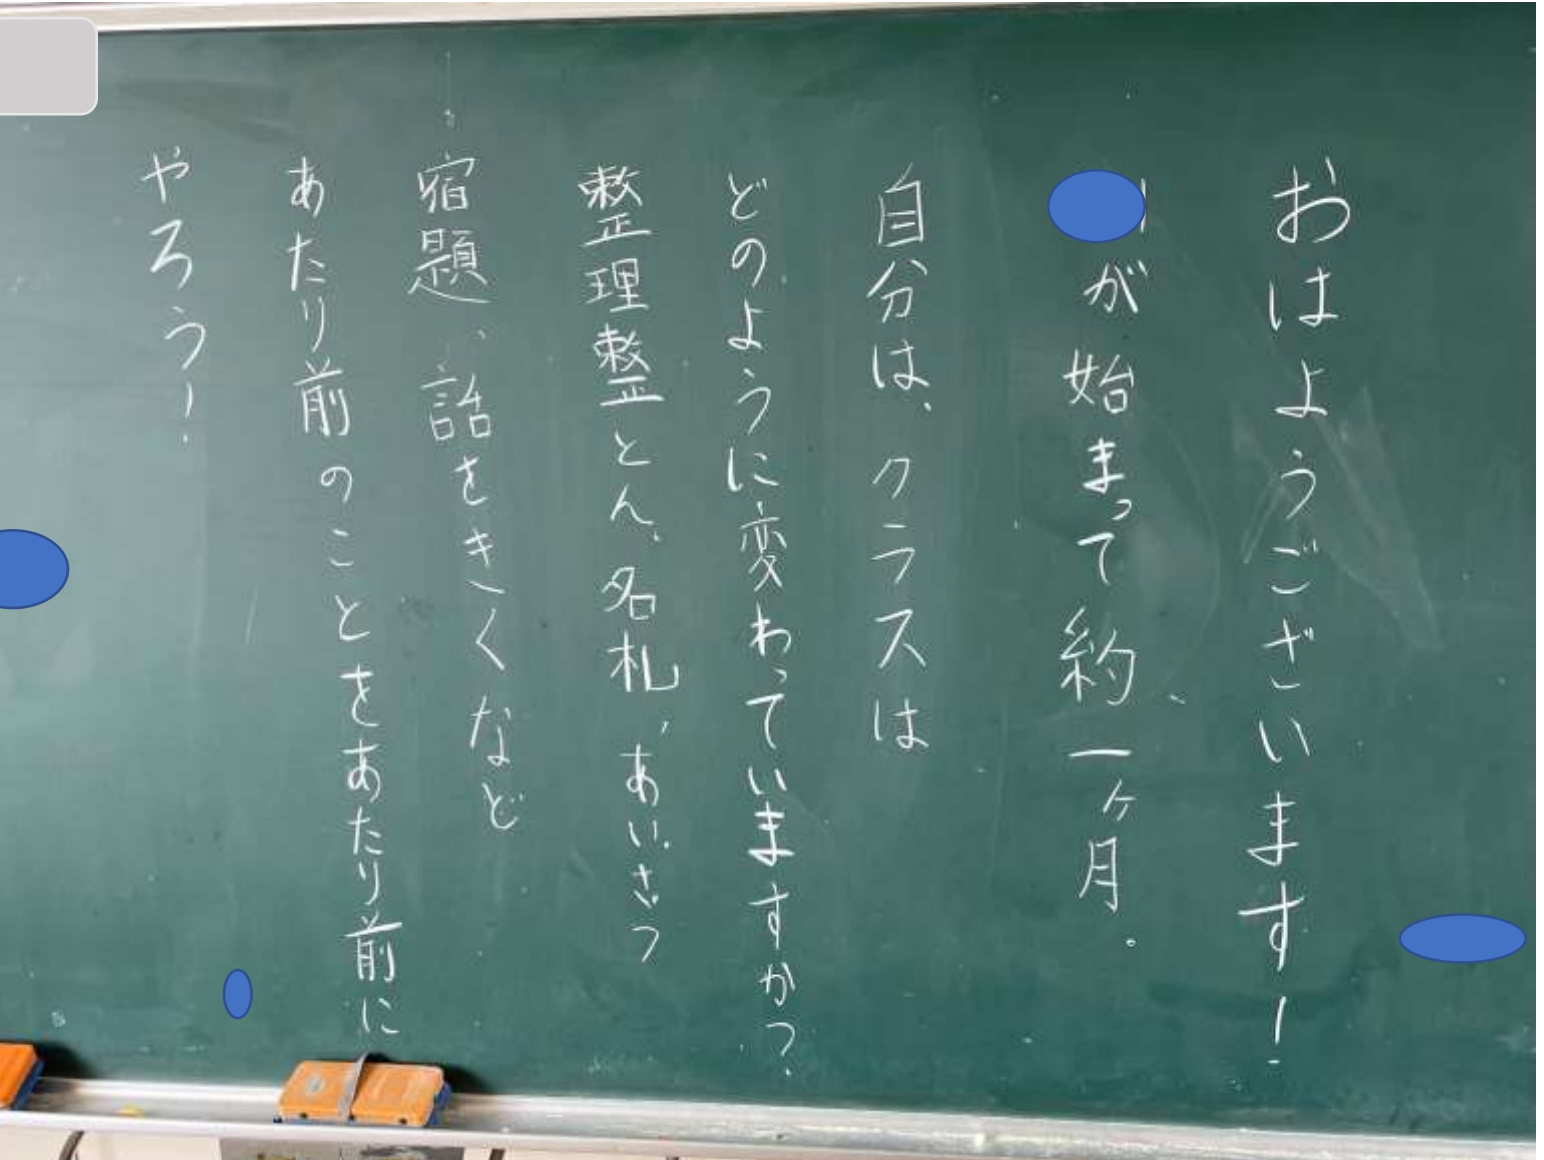 おはようございます!
が始まって約一ヶ月.
自分は、クラスは
どのように変わっていますか?
整理整とん、名札、あいさつ
宿題、話をきくなど
あたり前のことをあたり前に
やろう!